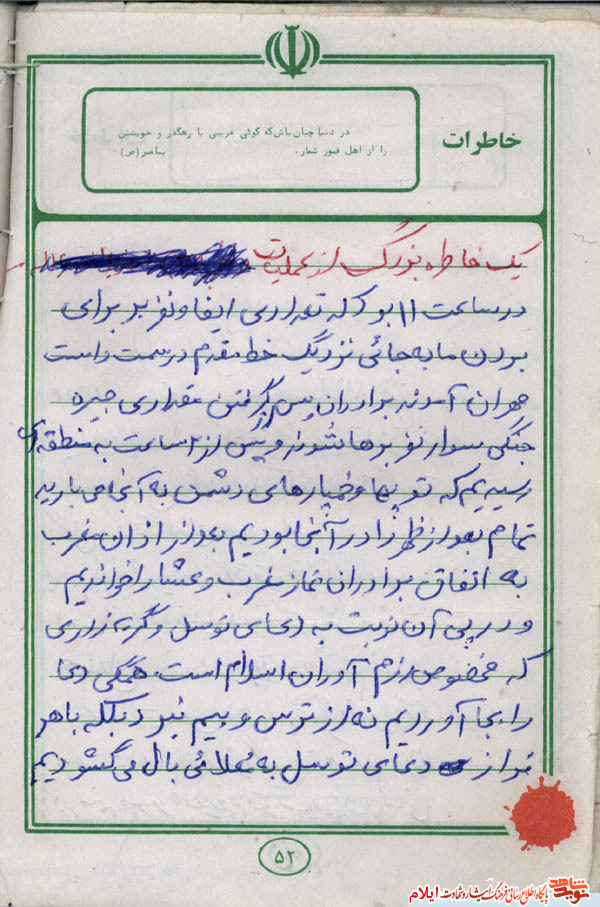 خاطرات
در دنیا چنان باش که گوئی غریبی یا رهگذر و خویشتن
را از اهل قبور شمار. پیامبر (ص)
یک خاطره بزرگ از عملیات
در ساعت ۱۱ بود که تعدادی ایفا و نفربر برای
بردن ما به جائی نزدیک خط مقدم در سمت راست
مهران آمدند برادران پس از گرفتن مقداری جیره
جنگی سوار نفربرها شدند و پس از ۲ ساعت به منطقه ای
رسیدیم که توپها و خمپارهای دشمن به آنجا می بارید
تمام بعد از ظهر را در آنجا بودیم بعد از اذان مغرب
به اتفاق برادران نماز مغرب و عشا را خواندیم
و در پی آن نوبت به دعای توسل و گریه زاری
که مخصوص رزم آوران اسلام است همگی دعا
را بجا آوردیم نه از ترس و بیم نبرد بلکه با هر
فراز دعای توسل به بال می گشودیم
۵۲
نوید شاهد
پایگاه اطلاع رسانی فرهنگ ایثار و شهادت ایلام